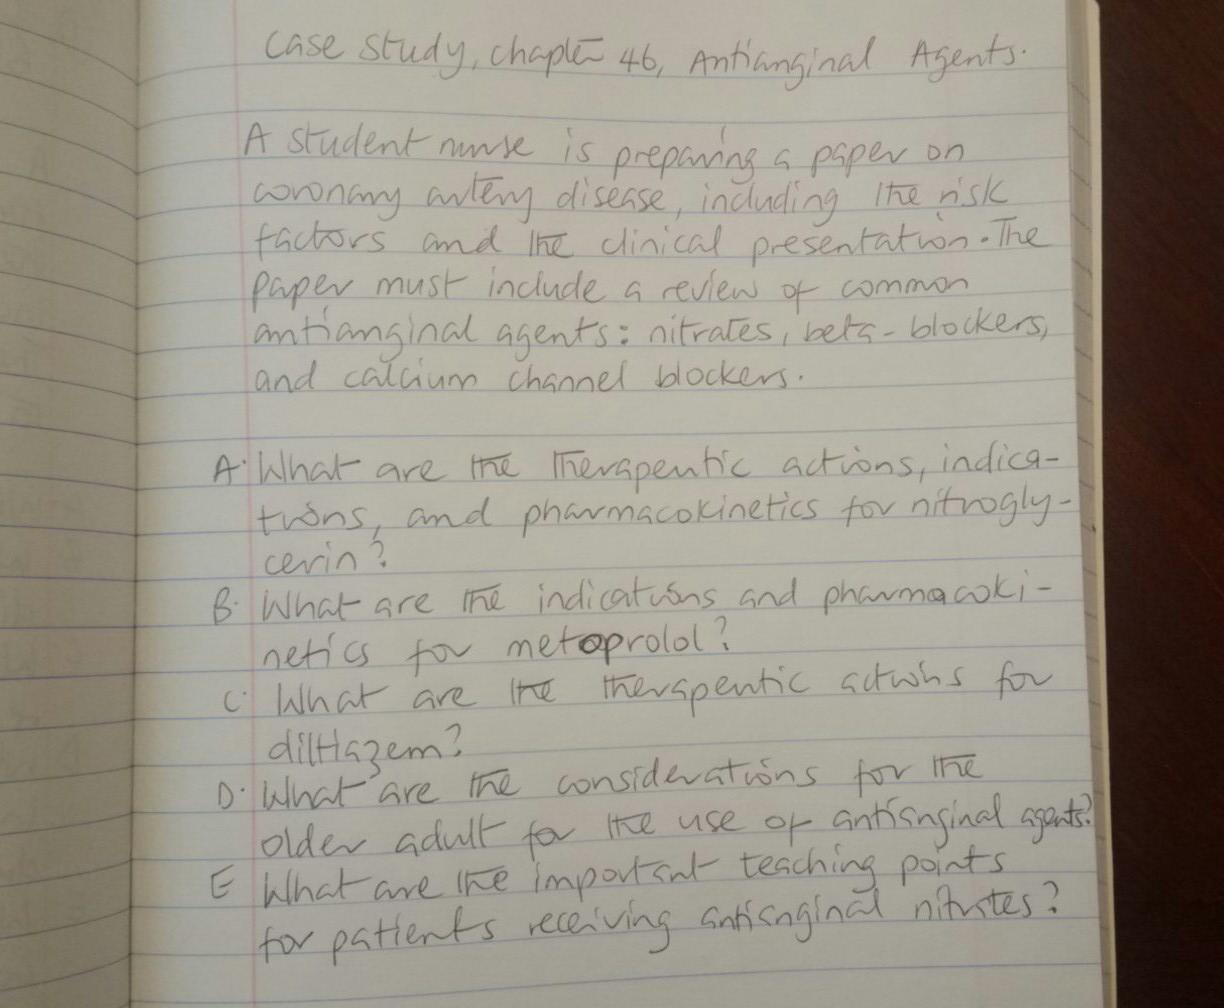 Case Study, chapter 46, Antianginal Agents.
A student nurse is preparing a paper on
coronary artery disease, including the risk
factors and the clinical presentation. The
paper must include a review of common
antianginal agents: nitrates, beta-blockers,
and calcium channel blockers.
A. What are the therapeutic actions, indica-
tions, and pharmacokinetics for nitrogly-
cerin?
B. What are the indications and pharmacoki-
netics for metoprolol?
C. What are the therapeutic actions for
diltiazem?
D. What are the considerations for the
older adult for the use of antianginal agents?
E What are the important teaching points
for patients receiving antianginal nitrates?